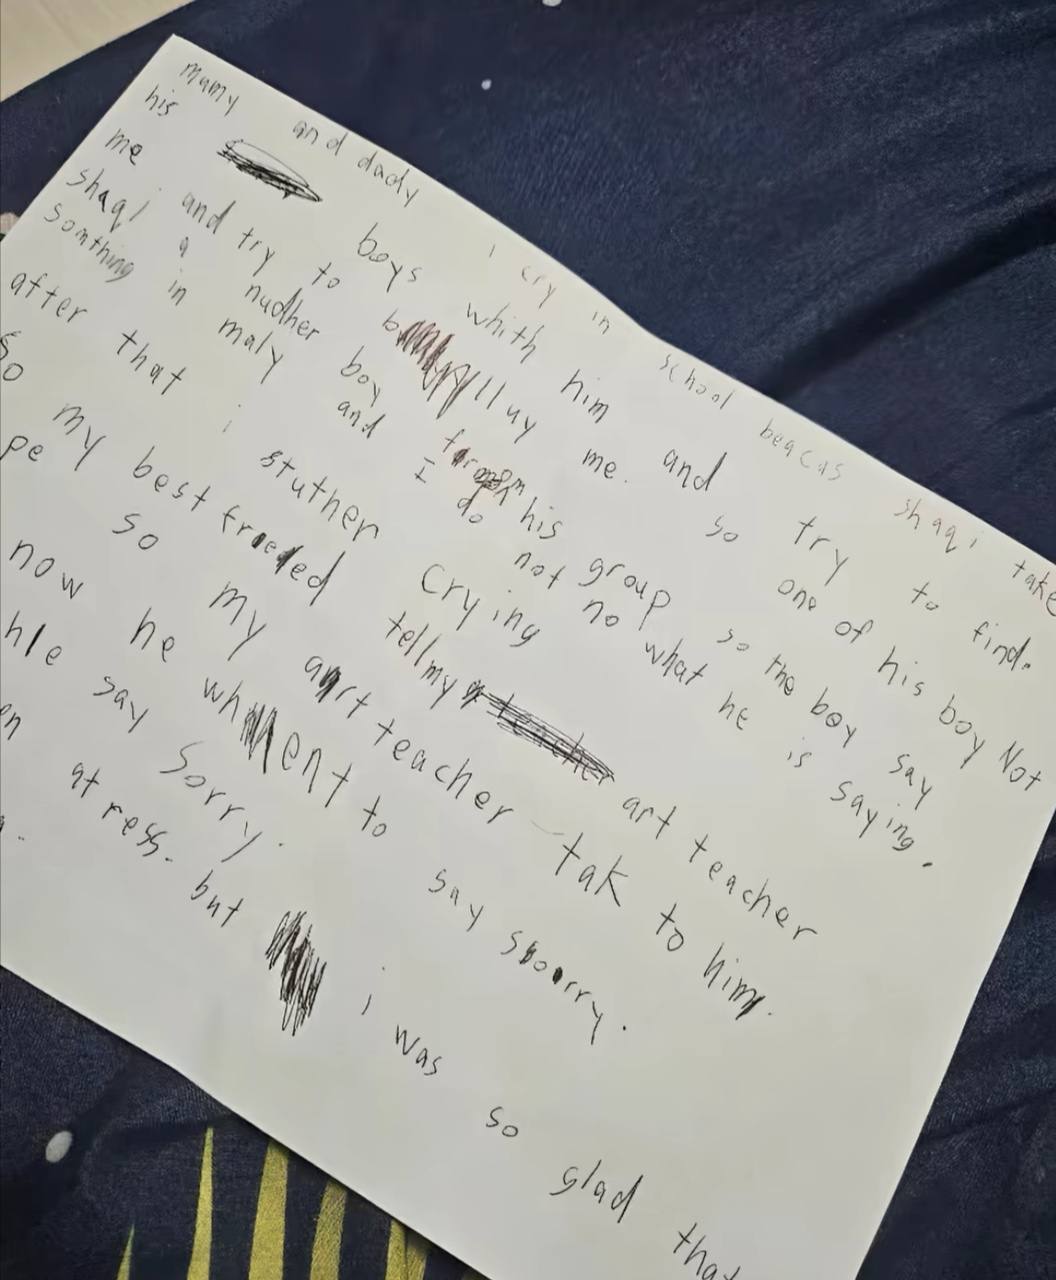 mumy and dady i cry in school beacas shaqi take
his boys whith him and try to find.
me and try to me. so one of his boy Not
shaqi a nudher boy his group so the boy say
somthing in maly and I do not no what he is saying.
after that i stuther crying
so my best freded tell my art teacher
so my art teacher tak to him.
now he whent to say soorry.
say sorry.
at ress. but i was so glad that